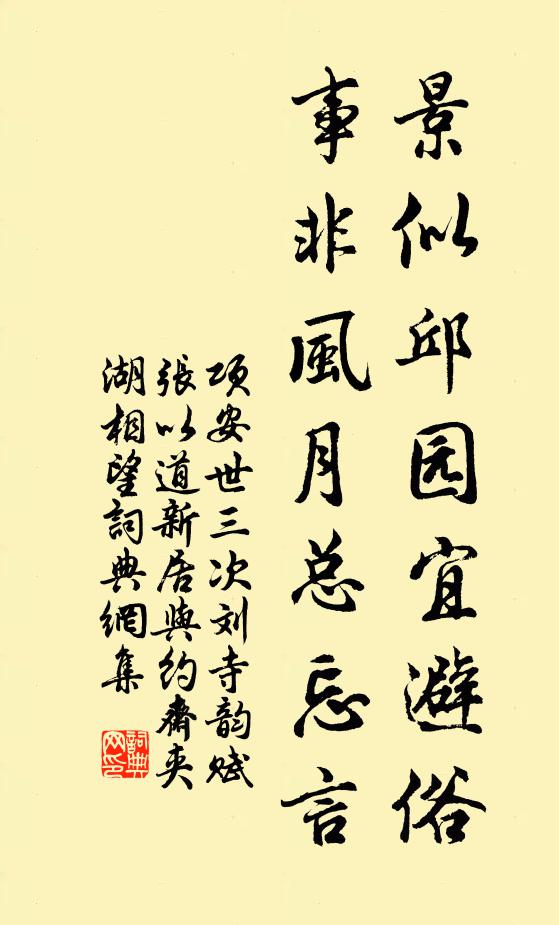 景似邱园宜避俗
事非風月总忘言
项安世三次刘寺韵赋
張以道新居與约齋夹
湖相望詞典網集
詞典
网印